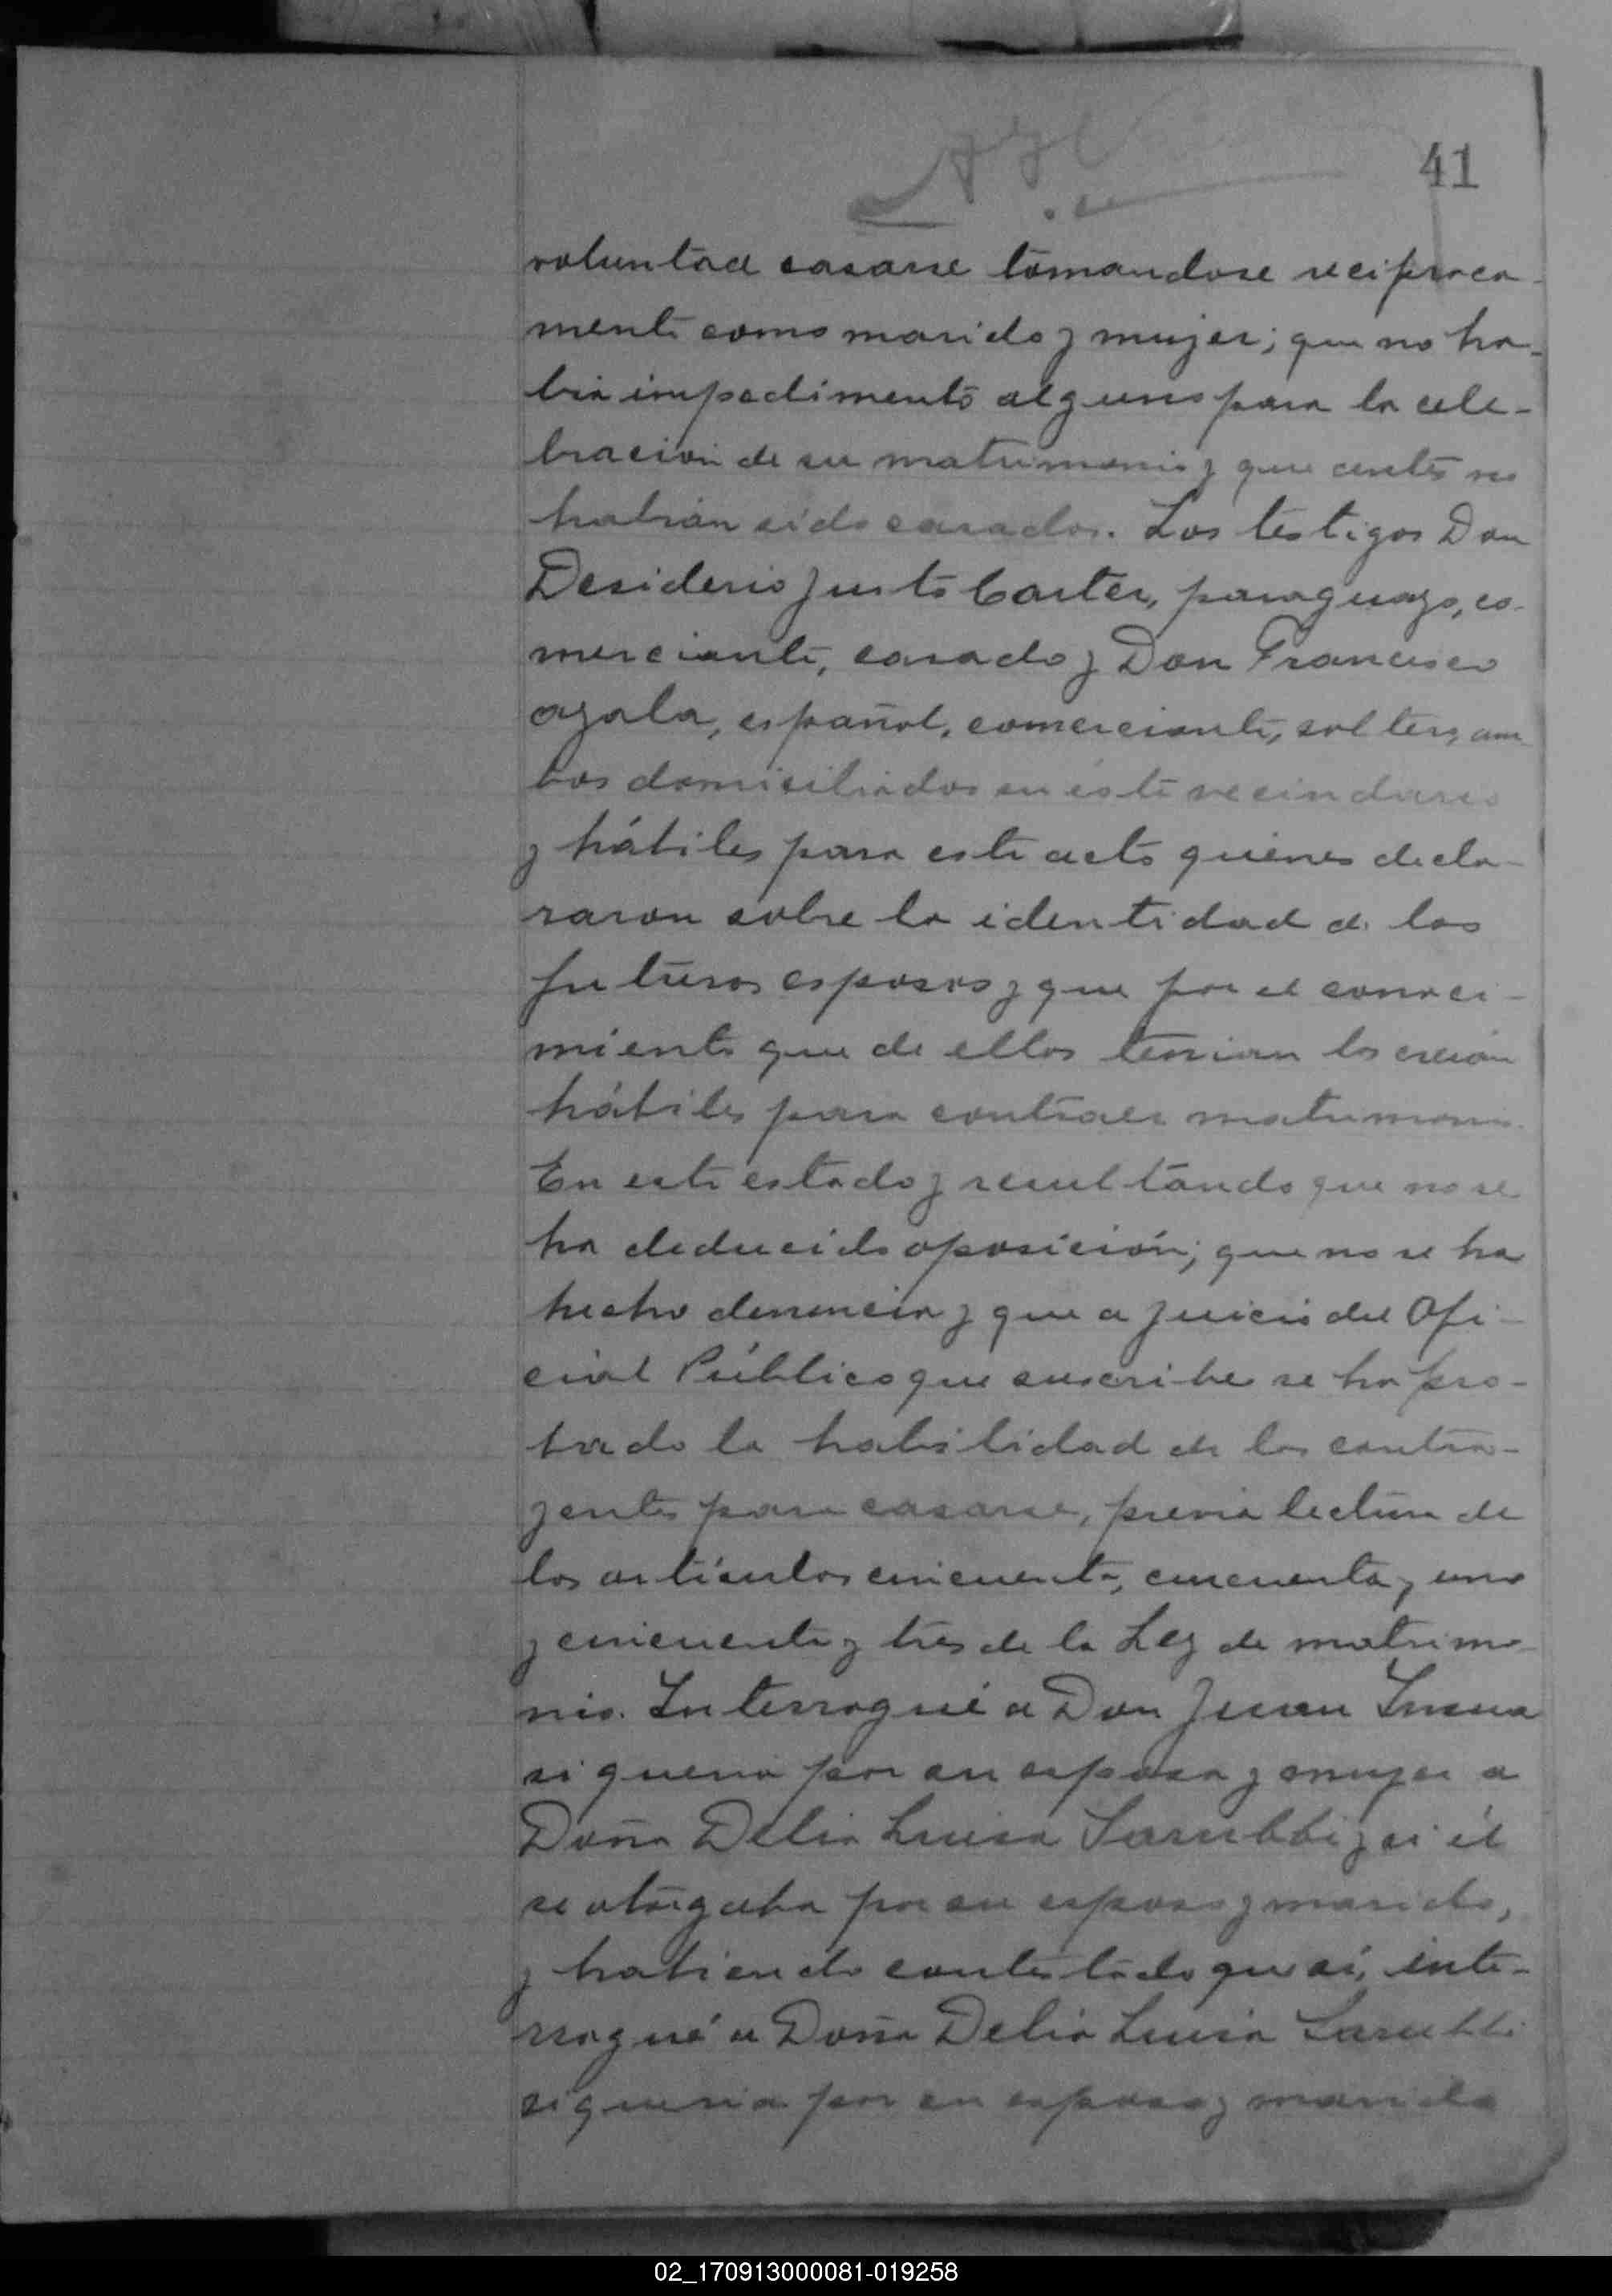 41
voluntad casarse tomandose reciproca-
mente como marido y mujer; que no ha-
bia impedimento alguno para la cele-
bracion de su matrimonio y que antes no
habian sido casados. Los testigos Don
Desiderio Justo Carter, paraguayo, co-
merciante, casado y Don Francisco
Ayala, español, comerciante, soltero, am
bos domiciliados en éste vecindario
y hábiles para este acto quienes decla-
raron sobre la identidad de los
futuros esposos y que por el conoci-
miento que de ellos tenian los creian
hábiles para contraer matrimonio.
En este estado y resultando que no se
ha deducido oposición; que no se ha
hecho denuncia y que a juicio del Ofi-
cial Público que suscribe se ha pro-
bado la habilidad de los contra-
yentes para casarse, previa lectura de
los artículos cincuenta, cincuenta y uno
y cincuenta y tres de la Ley de matrimo-
nio. Interrogué a Don Juan
si queria por su esposa y mujer a
Doña Delia Luisa Sarubbi y si él
se otorgaba por su esposo y marido,
y habiendo contestado que sí, inte-
rrogué a Doña Delia Luisa Sarubbi
si queria por su esposo y marido
02_170913000081-019258